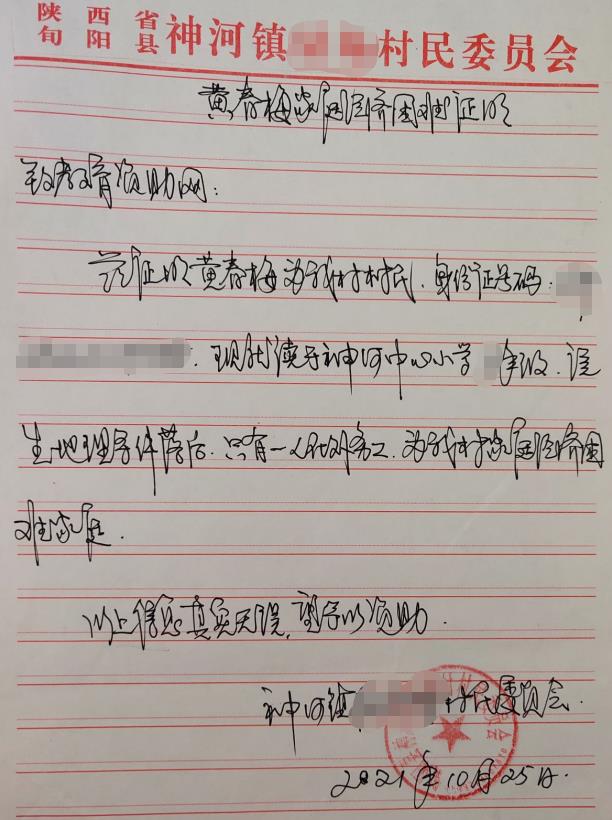 陕西省旬阳县神河镇村民委员会
黄春梅家庭经济困难证明
致教育资助网：
兹证明黄春梅为我村村民，身份证号码：
，现就读于神河中心小学年级，该
生地理条件落后，只有一人在外务工，为我村家庭经济困
难家庭．
以上信息真实无误，望予以资助．
神河镇村民委员会．
2021年10月25日．